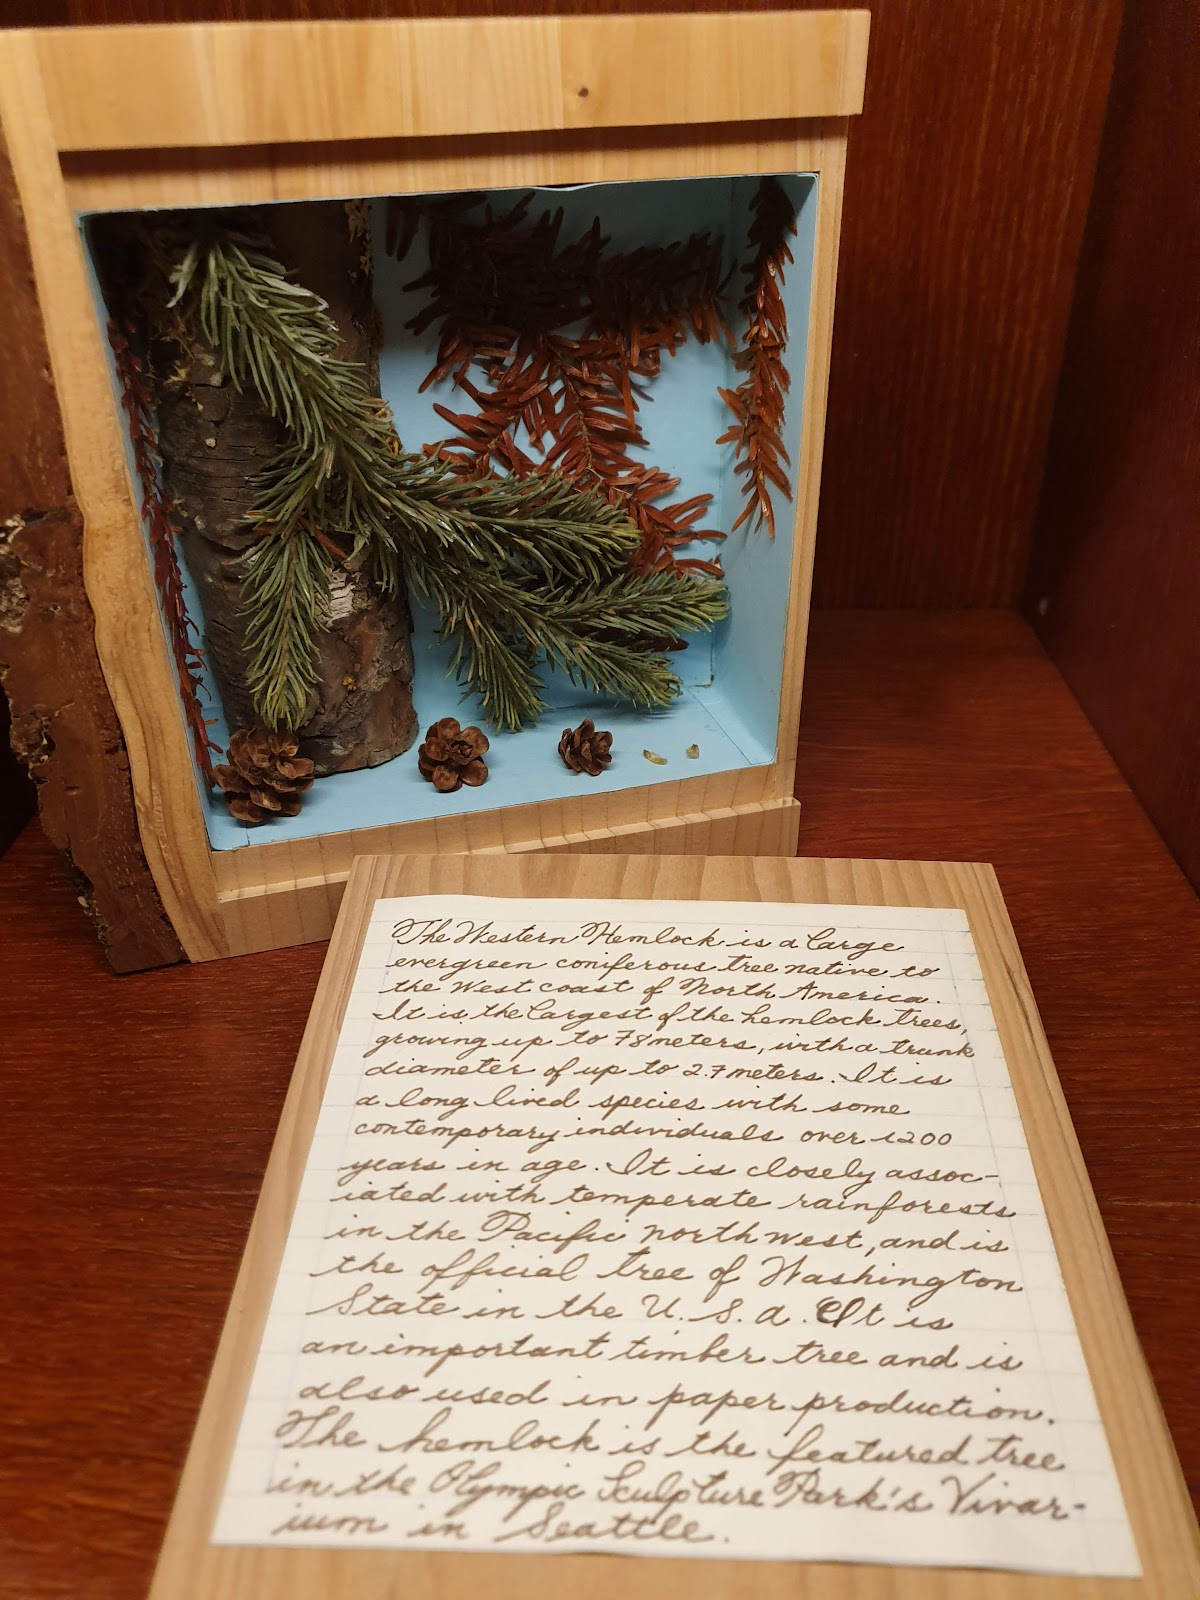 The Western Hemlock is a large
evergreen coniferous tree native to
the West coast of North America.
It is the largest of the hemlock trees,
growing up to 78 meters, with a trunk
diameter of up to 2.7 meters. It is
a long lived species with some
contemporary individuals over 1200
years in age. It is closely assoc-
iated with temperate rainforests
in the Pacific northwest, and is
the official tree of Washington
State in the U. S. A. It is
an important timber tree and is
also used in paper production.
The hemlock is the featured tree
in the Olympic Sculpture Park's Vivar-
ium in Seattle.